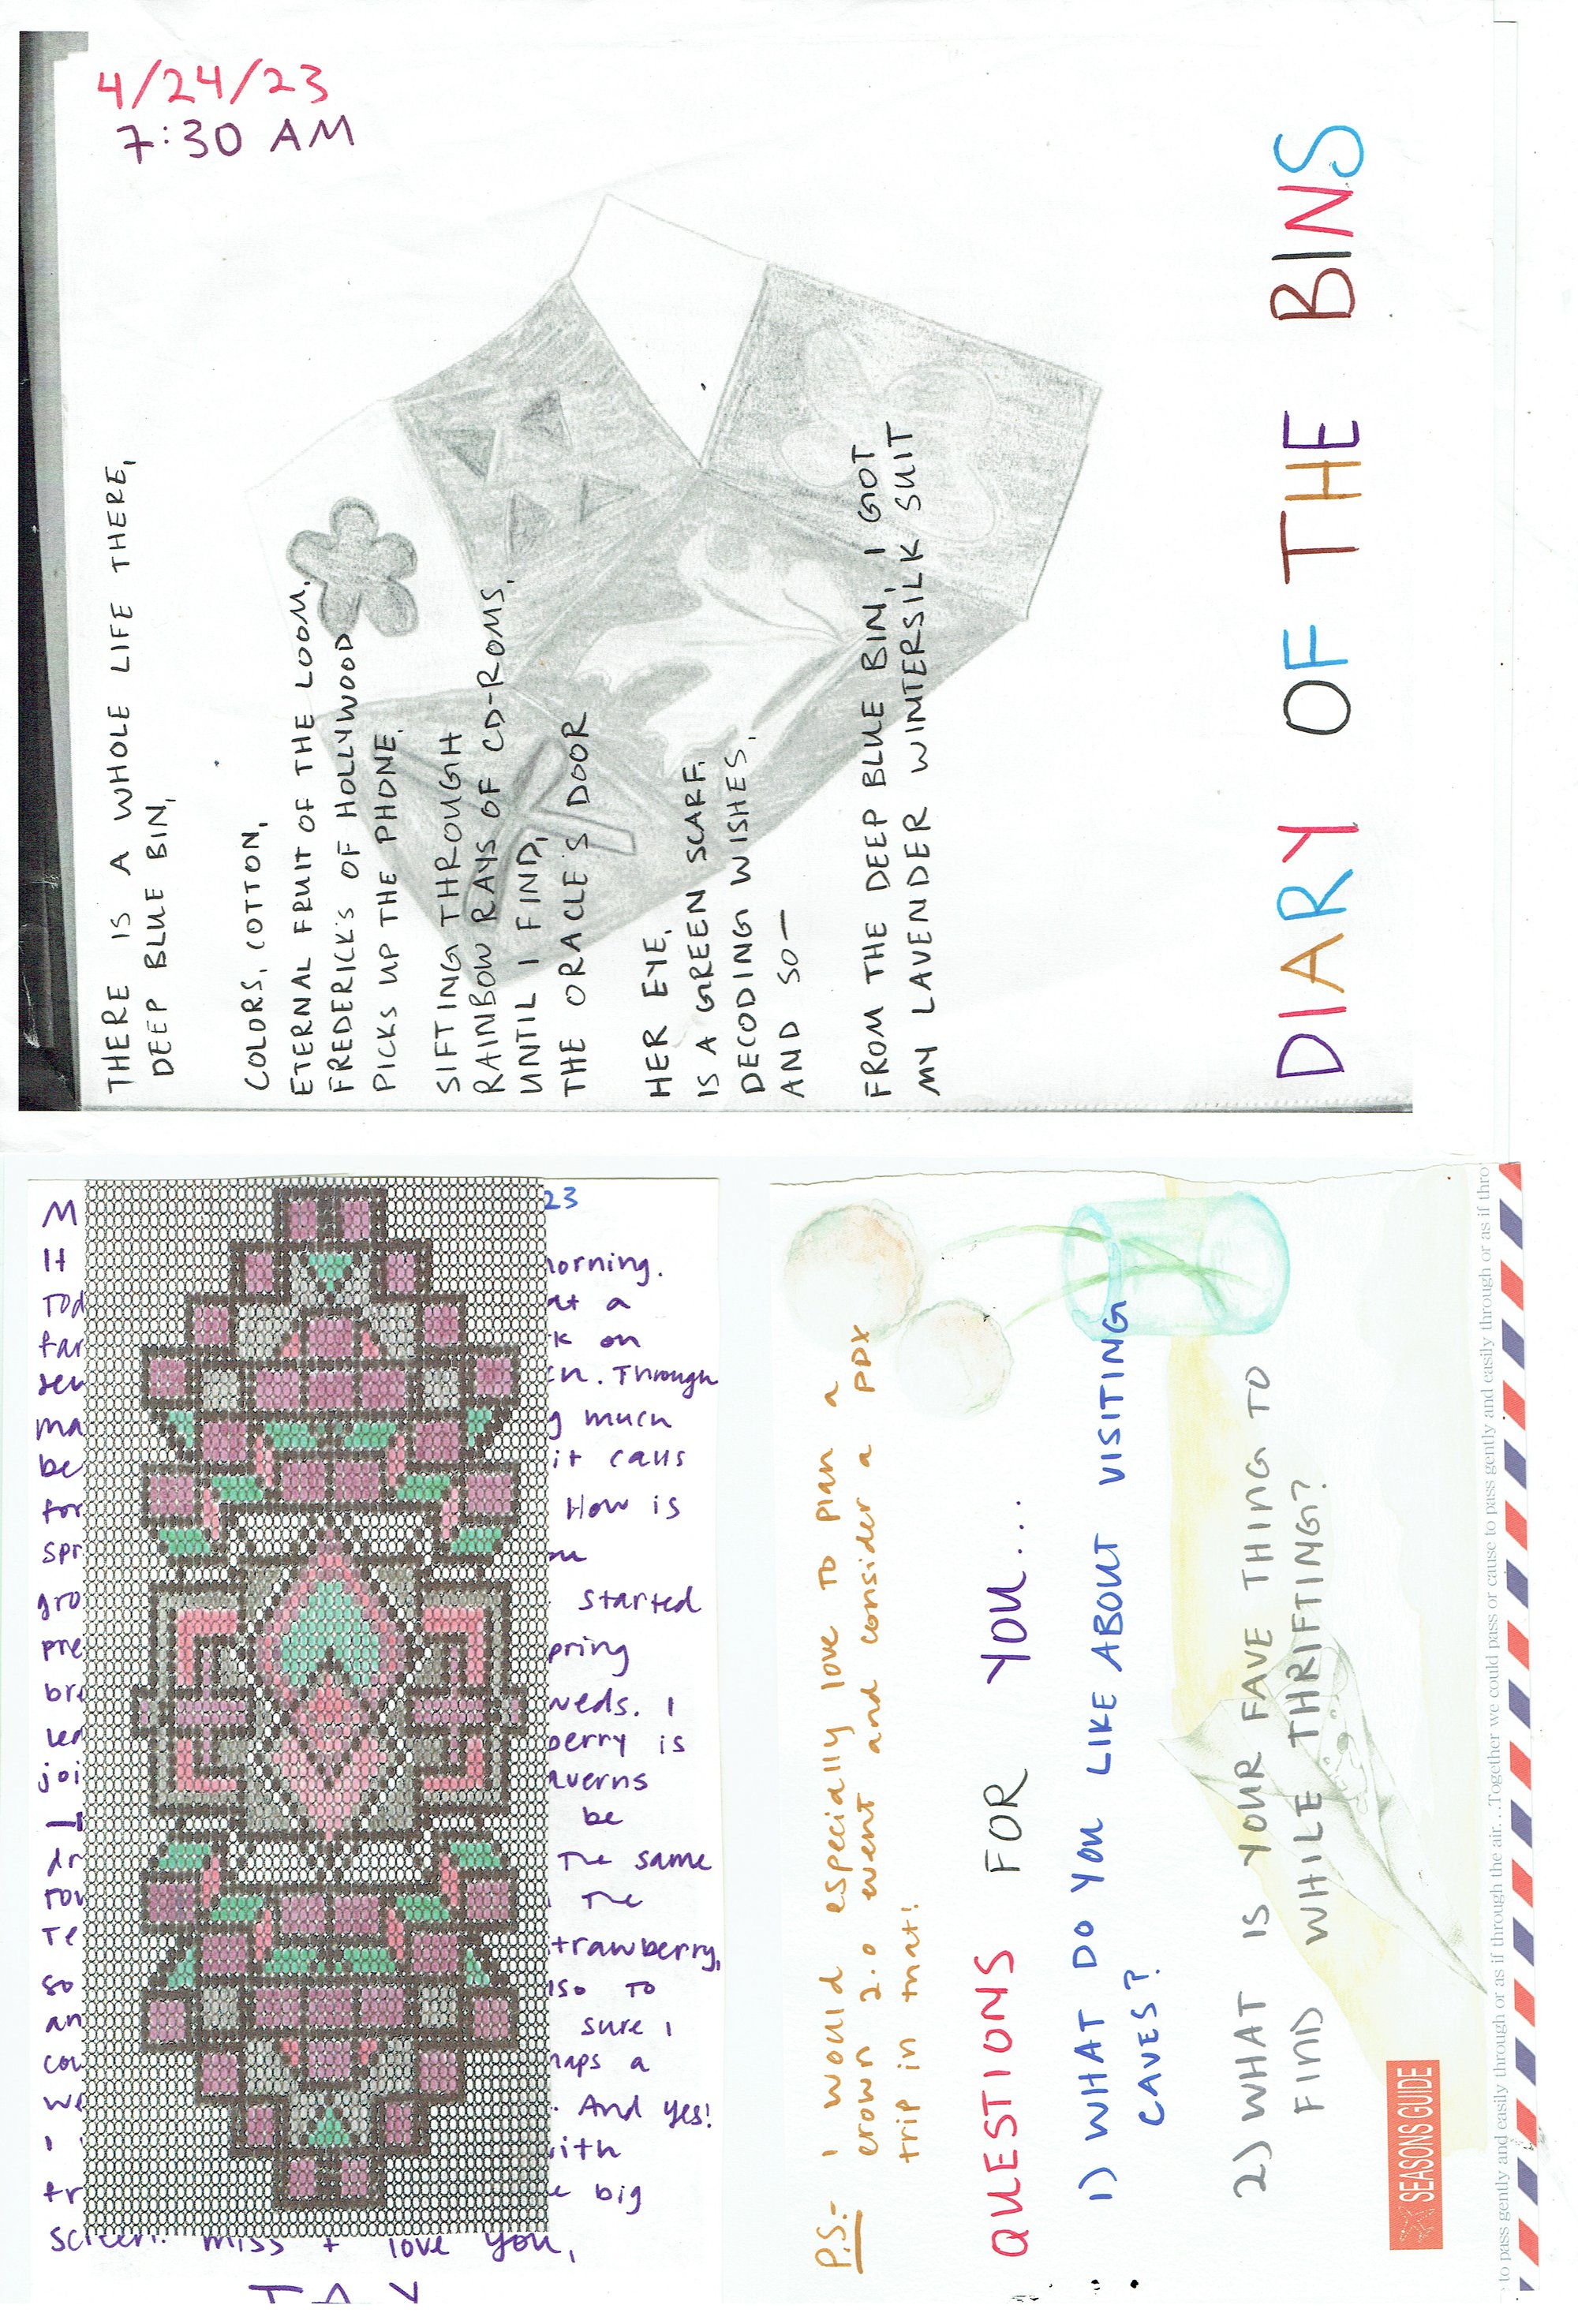 4/24/23
7:30 AM
THERE IS A WHOLE LIFE THERE,
DEEP BLUE BIN,
COLORS, COTTON,
ETERNAL FRUIT OF THE LOOM,
FREDERICK'S OF HOLLYWOOD
PICKS UP THE PHONE.
SIFTING THROUGH
RAINBOW RAYS OF CD-ROMS,
UNTIL I FIND,
THE ORACLE'S DOOR
HER EYE,
IS A GREEN SCARF.
DECODING WISHES,
AND SO—
FROM THE DEEP BLUE BIN, I GOT
MY LAVENDER WINTERSILK SUIT
DIARY OF THE BINS
M 23
It morning.
TOD at a
far k on
sen ch. Through
ma g much
be it calls
for How is
spr
gro started
pre pring
bre weds. I
led berry is
joi averns
be
dr The same
tow The
Te trawberry,
so lso To
an sure I
cou haps a
we . And yes!
I with
tr e big
screen. miss + love you,
P.S.- I would especially love to plan a
crown 2.0 event and consider a PDX
trip in that!
QUESTIONS FOR YOU...
1) WHAT DO YOU LIKE ABOUT VISITING
CAVES?
2) WHAT IS YOUR FAVE THING TO
FIND WHILE THRIFTING?
SEASONS GUIDE
to pass gently and easily through or as if through the air...Together we could pass or cause to pass gently and easily through or as if thro